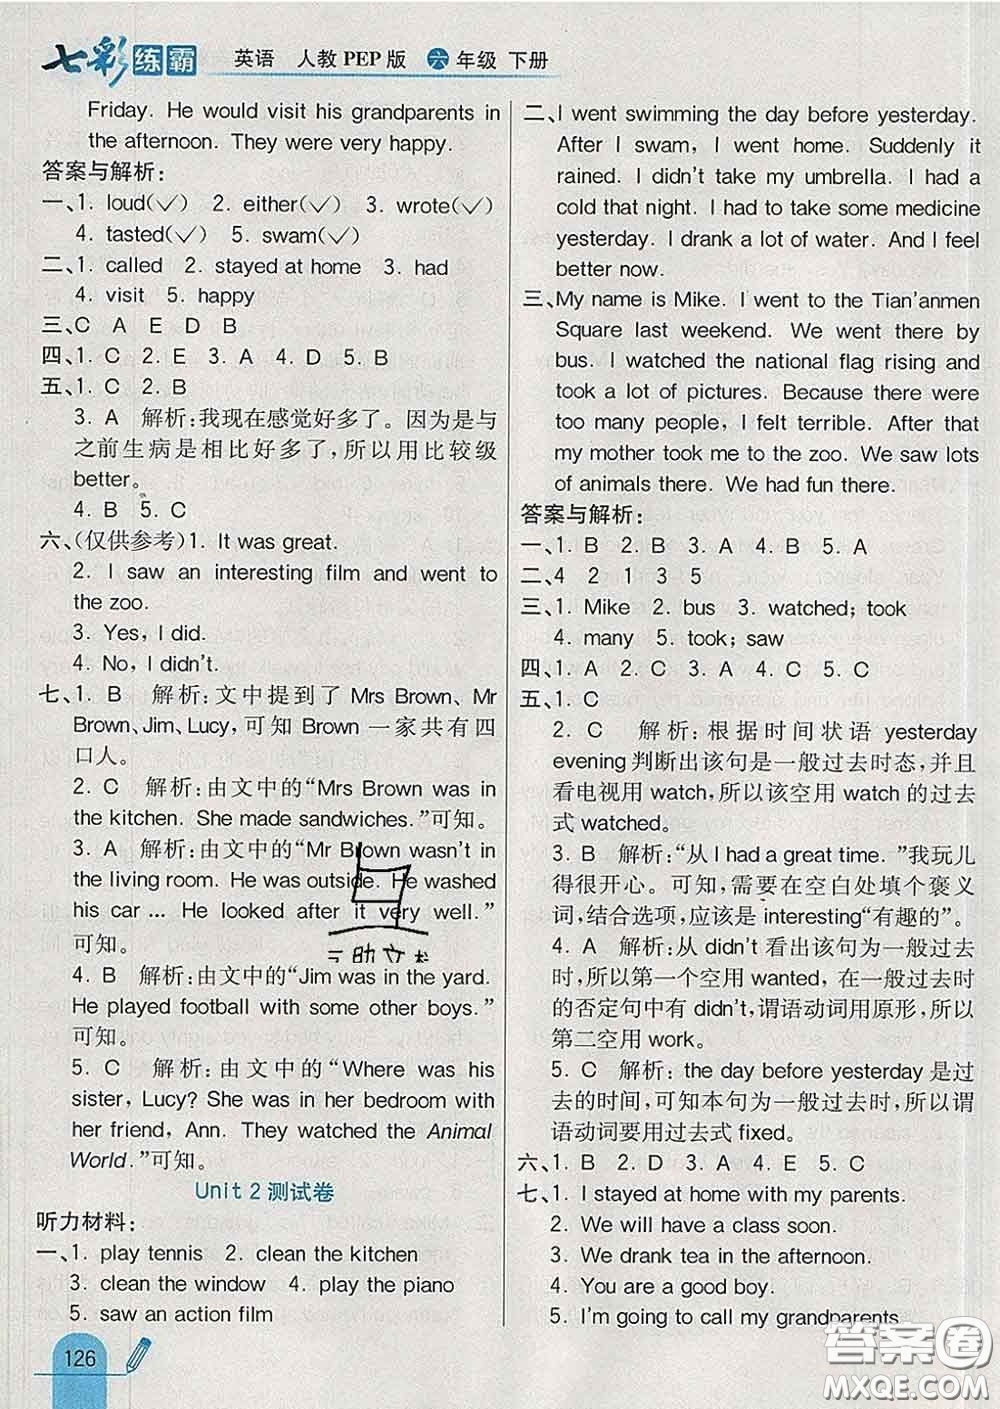 七彩练霸 英语 人教 PEP 版 六年级 下册
Friday. He would visit his grandparents in
the afternoon. They were very happy.
答案与解析:
一、1. loud(✓) 2. either(✓) 3. wrote(✓)
4. tasted(✓) 5. swam(✓)
二、1. called 2. stayed at home 3. had
4. visit 5. happy
三、C A E D B
四、1. C 2. E 3. A 4. D 5. B
五、1. C 2. B
3. A 解析:我现在感觉好多了。因为是与
之前生病是相比好多了,所以用比较级
better。
4. B 5. C
六、(仅供参考)1. It was great.
2. I saw an interesting film and went to
the zoo.
3. Yes, I did.
4. No, I didn't.
七、1. B 解析:文中提到了 Mrs Brown、Mr
Brown、Jim、Lucy,可知 Brown 一家共有四
口人。
2. C 解析:由文中的“Mrs Brown was in
the kitchen. She made sandwiches.”可知。
3. A 解析:由文中的“Mr Brown wasn't in
the living room. He was outside. He washed
his car ... He looked after it very well.”
可知。
4. B 解析:由文中的“Jim was in the yard.
He played football with some other boys.”
可知。
5. C 解析:由文中的“Where was his
sister, Lucy? She was in her bedroom with
her friend, Ann. They watched the Animal
World.”可知。
Unit 2 测试卷
听力材料:
一、1. play tennis 2. clean the kitchen
3. clean the window 4. play the piano
5. saw an action film
126
二、I went swimming the day before yesterday.
After I swam, I went home. Suddenly it
rained. I didn't take my umbrella. I had a
cold that night. I had to take some medicine
yesterday. I drank a lot of water. And I feel
better now.
三、My name is Mike. I went to the Tian'anmen
Square last weekend. We went there by
bus. I watched the national flag rising and
took a lot of pictures. Because there were
too many people, I felt terrible. After that
my mother took me to the zoo. We saw lots
of animals there. We had fun there.
答案与解析:
一、1. B 2. B 3. A 4. B 5. A
二、4 2 1 3 5
三、1. Mike 2. bus 3. watched; took
4. many 5. took; saw
四、1. A 2. C 3. A 4. C 5. C
五、1. C
2. C 解析:根据时间状语 yesterday
evening 判断出该句是一般过去时态,并且
看电视用 watch,所以该空用 watch 的过去
式 watched。
3. B 解析:“从 I had a great time. ”我玩儿
得很开心。可知,需要在空白处填个褒义
词,结合选项,应该是 interesting“有趣的”。
4. A 解析:从 didn't 看出该句为一般过去
时,所以第一个空用 wanted, 在一般过去时
的否定句中有 didn't,谓语动词用原形,所以
第二空用 work。
5. C 解析: the day before yesterday 是过
去的时间,可知本句为一般过去时,所以谓
语动词要用过去式 fixed。
六、1. B 2. D 3. A 4. E 5. C
七、1. I stayed at home with my parents.
2. We will have a class soon.
3. We drank tea in the afternoon.
4. You are a good boy.
5. I'm going to call my grandparents
答案圈
MXQE.COM